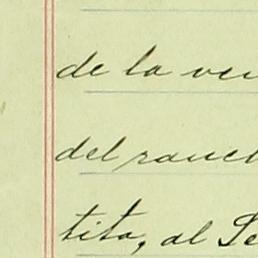 de la ven
del ranch
tita, al Se